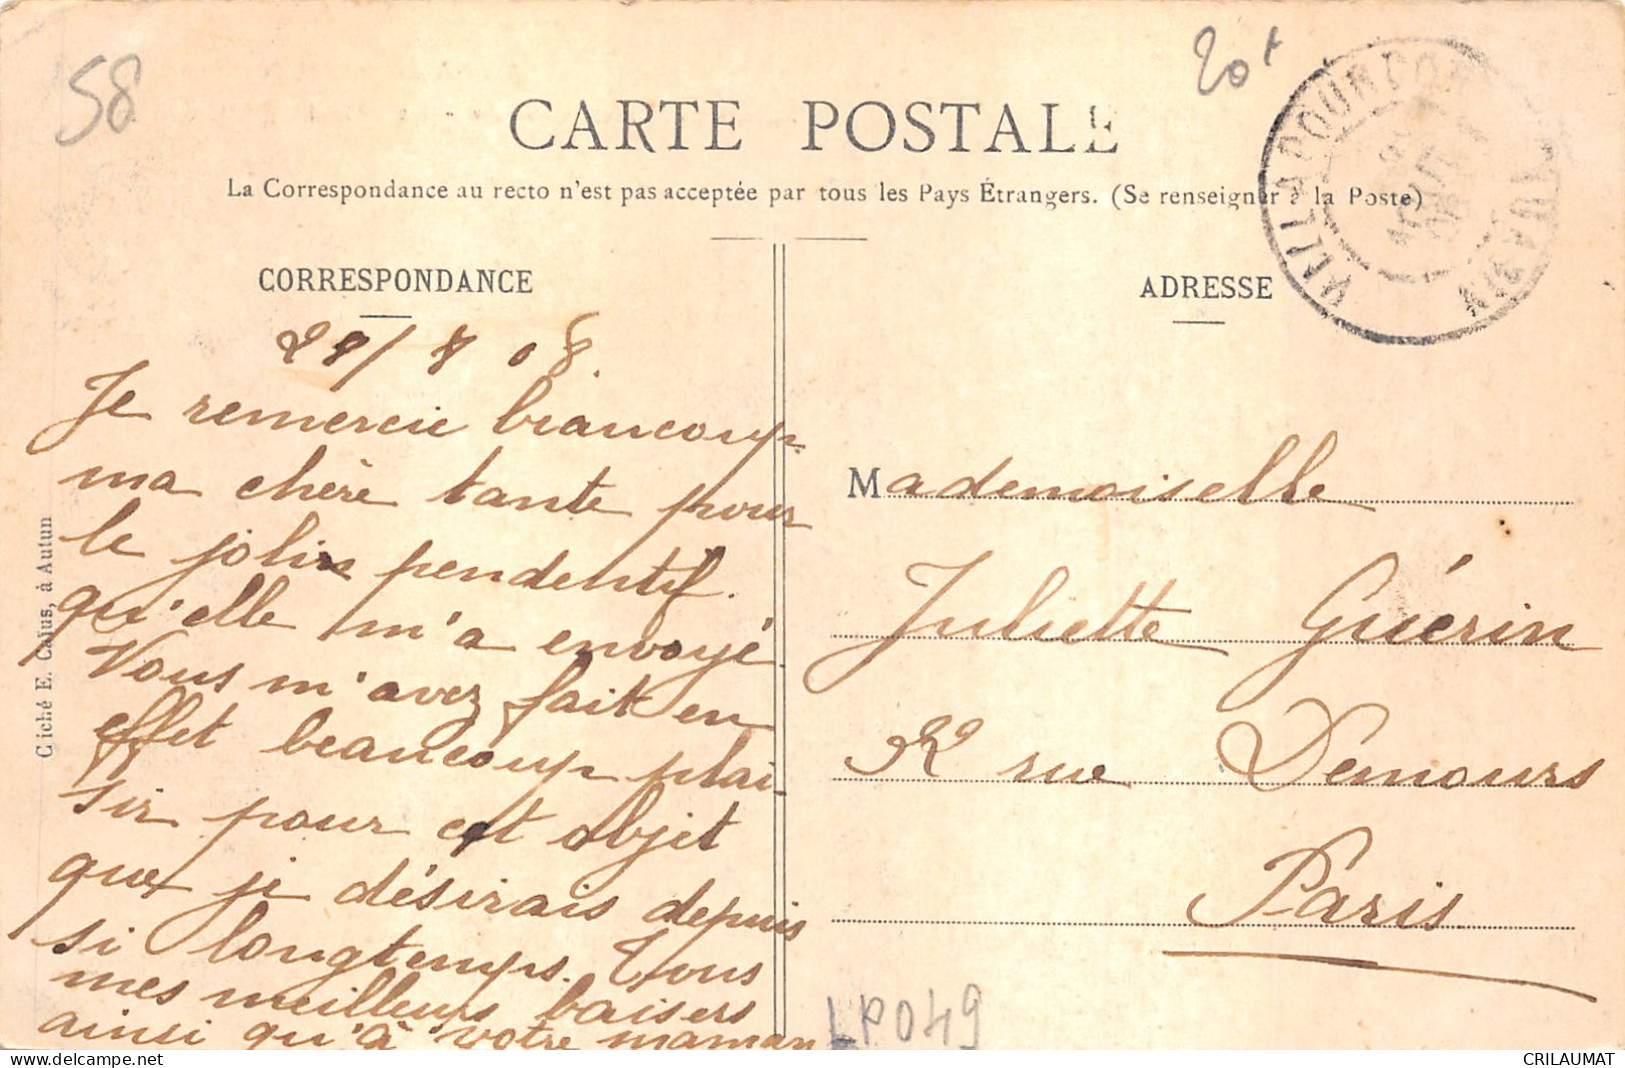 58
20f
CARTE POSTALE
La Correspondance au recto n'est pas acceptée par tous les Pays Étrangers. (Se renseigner à la Poste)
VILLAPOURÇON
NIÈVRE
CORRESPONDANCE
29/7 08.
Je remercie beaucoup
ma chère tante pour
le joli pendentif.
qu'elle m'a envoyé
Vous m'avez fait en
effet beaucoup plai
sir pour cet objet
que je désirais depuis
si longtemps. Tous
mes meilleurs baisers
ainsi qu'à votre maman
Cliché E. Caïus, à Autun
ADRESSE
Mademoiselle
Juliette Guérin
rue Demours
Paris
LP049
delcampe.net
CRILAUMAT